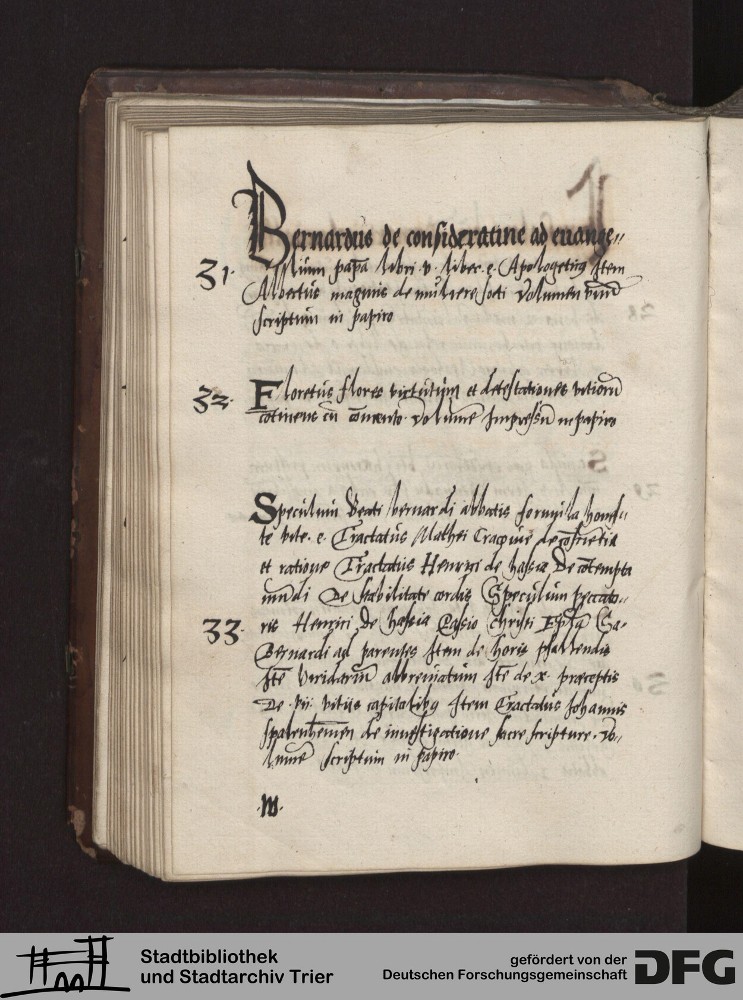 Bernardus de consideratine ad euange„
31. lium papa libri v. liber e. Apologeticus Item
Albertus magnus de muliere forti Volumen unū
scriptum in papiro
32. Floretus flores virtutum et detestationes vitiorū
cōtinens cū cōmento. volumē Impressū in papiro
Speculum Beati bernardi abbatis formula hones„
te vite. e. Tractatus Mathei Cracouie de cōscientia
et ratione Tractatus Henrici de hassia De cōtemptu
mundi De stabilitate cordis Speculum peccato„
33. ris Henrici De hassia Passio christi Epta
Bernardi ad parentes Item de horis psallendis
Itē Viridariū abbreuiatum Itē de x. præceptis
De vii vitiis capitalibꝫ Item Tractatus Johannis
de inuestigatione sacre scripture. vo„
lumē scriptum in papiro.
.m.
Stadtbibliothek
und Stadtarchiv Trier
gefördert von der
Deutschen Forschungsgemeinschaft
DFG